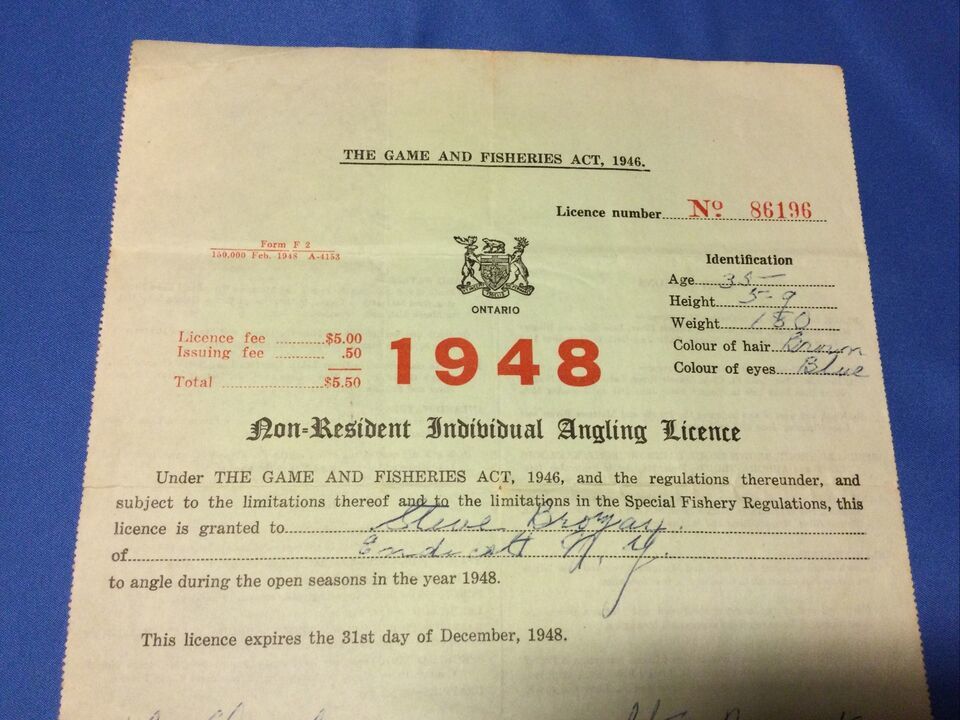 THE GAME AND FISHERIES ACT, 1946.
Licence number No 86196
Form F 2
150,000 Feb. 1948 A-4153
ONTARIO
Identification
Age 35
Height 5-9
Weight 150
Colour of hair Brown
Colour of eyes Blue
Licence fee $5.00
Issuing fee .50
Total $5.50
1948
Non-Resident Individual Angling Licence
Under THE GAME AND FISHERIES ACT, 1946, and the regulations thereunder, and
subject to the limitations thereof and to the limitations in the Special Fishery Regulations, this
licence is granted to Steve
of Endicott N.Y.
to angle during the open seasons in the year 1948.
This licence expires the 31st day of December, 1948.